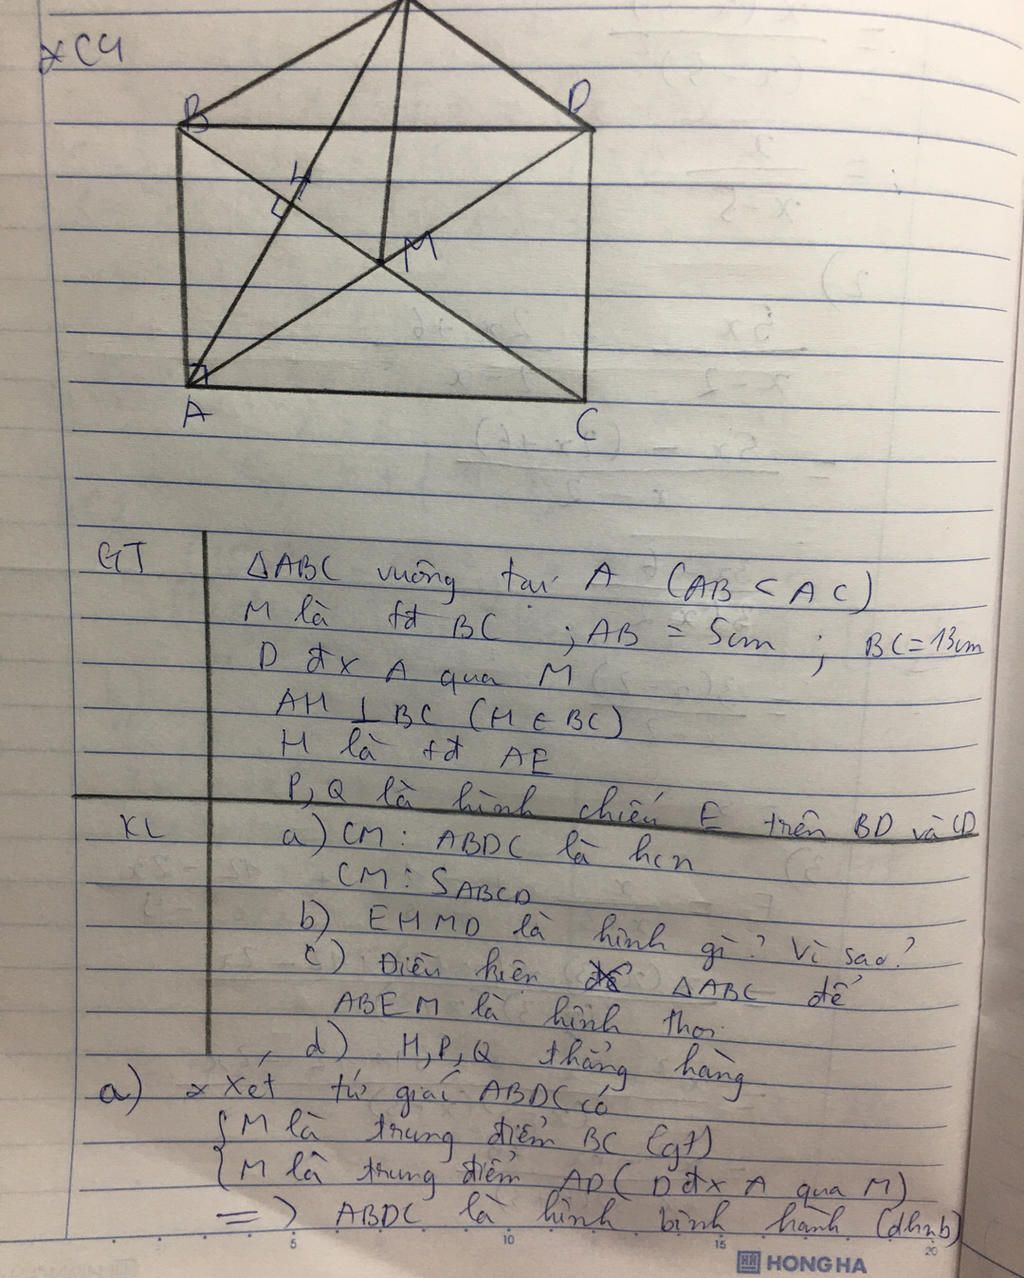 * C4
B
D
H
M
A
C
GT
ΔABC vuông tại A (AB < AC)
M là tđ BC ; AB = 5cm ; BC = 13cm
D đx A qua M
AH ⊥ BC (H ∈ BC)
H là tđ AE
P, Q là hình chiếu E trên BD và CD
KL
a) CM : ABDC là hcn
CM : SABCD
b) EHMD là hình gì? Vì sao?
c) Điều kiện ΔABC để
ABEM là hình thoi
d) H, P, Q thẳng hàng
a) * Xét tứ giác ABDC có
{ M là trung điểm BC (gt)
{ M là trung điểm AD ( D đx A qua M)
=> ABDC là hình bình hành (dhnb)
5 10 15 20
HH HONG HA